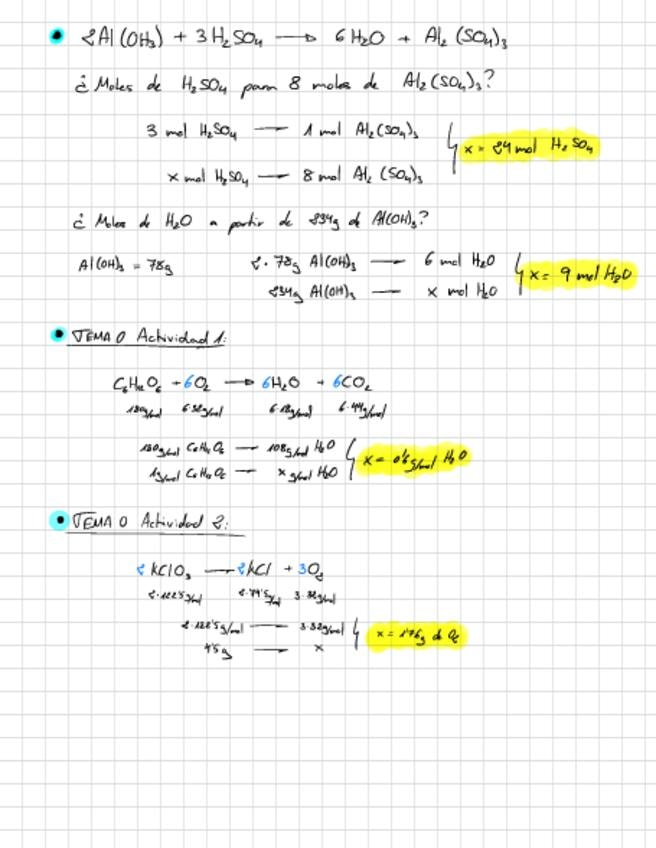 2Al(OH₃) + 3H₂SO₄ → 6H₂O + Al₂(SO₄)₃
¿Moles de H₂SO₄ para 8 moles de Al₂(SO₄)₃?
3 mol H₂SO₄ — 1 mol Al₂(SO₄)₃
x mol H₂SO₄ — 8 mol Al₂(SO₄)₃
x = 24 mol H₂SO₄
¿Moles de H₂O a partir de 234g de Al(OH)₃?
Al(OH)₃ = 78g
2·78g Al(OH)₃ — 6 mol H₂O
234g Al(OH)₃ — x mol H₂O
x = 9 mol H₂O
TEMA 0 Actividad 1:
C₆H₁₂O₆ + 6O₂ → 6H₂O + 6CO₂
180g/mol 6·32g/mol 6·18g/mol 6·44g/mol
180g/mol C₆H₁₂O₆ — 108g/mol H₂O
1g/mol C₆H₁₂O₆ — x g/mol H₂O
x = 0'6 g/mol H₂O
TEMA 0 Actividad 2:
2KClO₃ → 2KCl + 3O₂
2·122'5g/mol 2·74'5g/mol 3·32g/mol
2·122'5g/mol — 3·32g/mol
4'5g — x
x = 1'76g de O₂